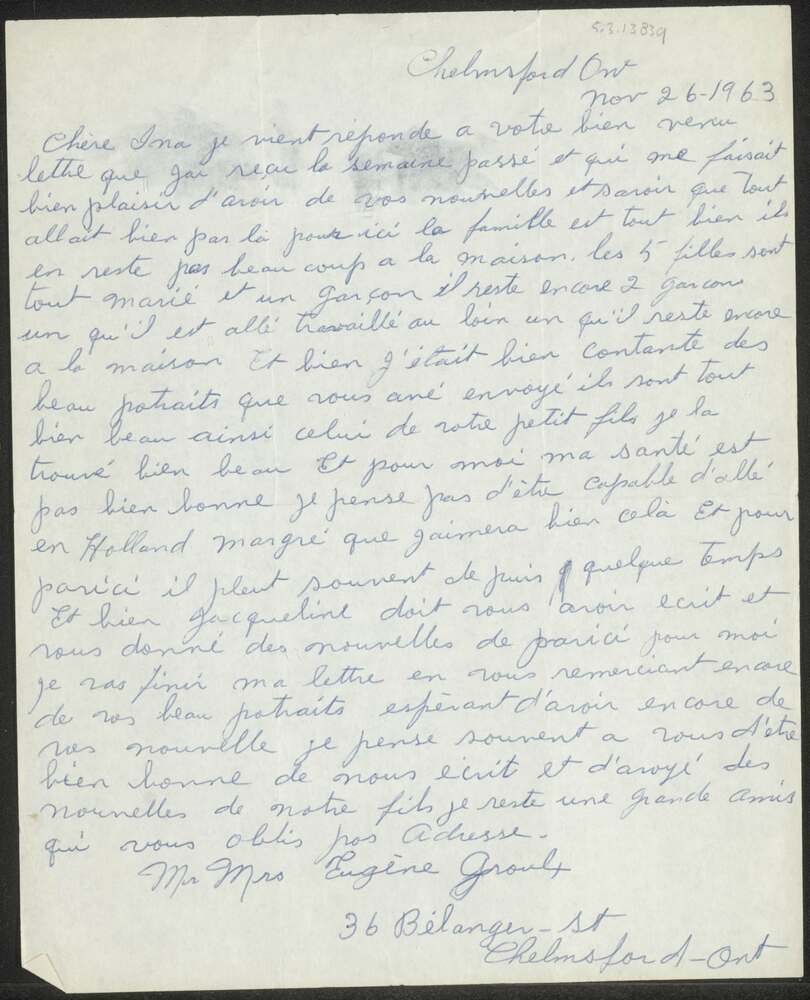 5.3.13839
Chelmsford Ont
Nov 26-1963
Chère Ina je vient réponde a votre bien venu
lettre que jai reçu la semaine passé et qui me faisait
bien plaisir d'avoir de vos nouvelles et savoir que tout
allait bien par là pour ici la famille est tout bien ils
en reste pas beaucoup a la maison. les 5 filles sont
tout marié et un garçon il reste encore 2 garcons
un qu'il est allé travaillé au loin un qu'il reste encore
a la maison Et bien j'était bien contante des
beau potraits que vous avé envoyé ils sont tout
bien beau ainsi celui de votre petit fils je la
trouvé bien beau Et pour moi ma santé est
pas bien bonne je pense pas d'être capable d'allé
en Holland margré que jaimera bien celà Et pour
parici il pleut souvent depuis quelque temps
Et bien Jacqueline doit vous avoir ecrit et
vous donné des nouvelles de parici pour moi
je vas finir ma lettre en vous remerciant encore
de vos beau potraits espèrant d'avoir encore de
vos nouvelle je pense souvent a vous d'être
bien bonne de nous écrit et d'avoyé des
nouvelles de notre fils je reste une grande amis
qui vous oblis pas Adresse.
Mr Mrs Eugène Groulx
36 Bélanger-St
Chelmsford-Ont